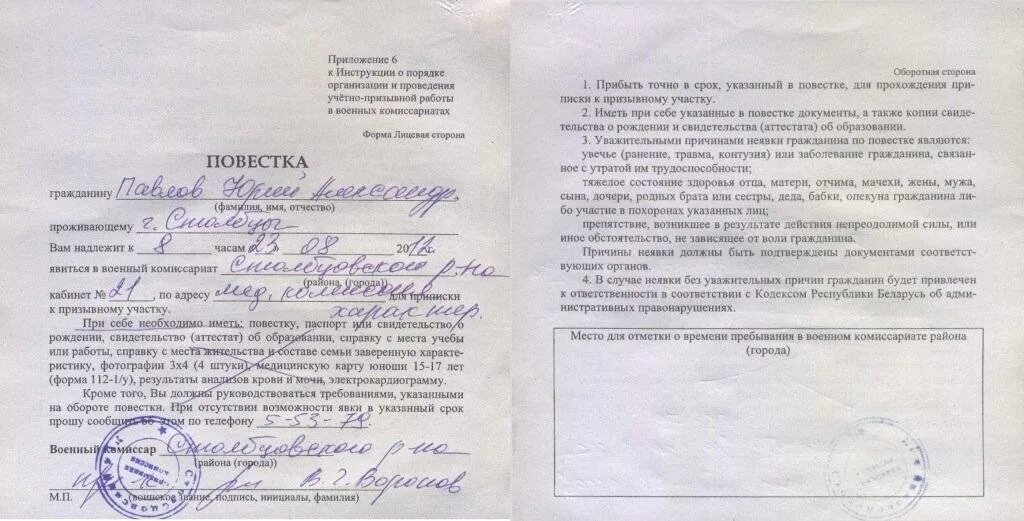 Приложение 6
к Инструкции о порядке
организации и проведения
учётно-призывной работы
в военных комиссариатах
Форма Лицевая сторона
ПОВЕСТКА
гражданину Павлов Юрий Александр.
(фамилия, имя, отчество)
проживающему г. Столбцы
Вам надлежит к 8 часам 23 » 08 2012 г.
явиться в военный комиссариат Столбцовского р-на
(района, (города))
кабинет № 21 , по адресу мед. комиссия для приписки
к призывному участку. характер.
При себе необходимо иметь: повестку, паспорт или свидетельство о
рождении, свидетельство (аттестат) об образовании, справку с места учебы
или работы, справку с места жительства и составе семьи заверенную характе-
ристику, фотографии 3х4 (4 штуки), медицинскую карту юноши 15-17 лет
(форма 112-1/у), результаты анализов крови и мочи, электрокардиограмму.
Кроме того, Вы должны руководствоваться требованиями, указанными
на обороте повестки. При отсутствии возможности явки в указанный срок
прошу сообщить об этом по телефону 5-53-79.
Военный комиссар Столбцовского р-на
(района (города))
В. Г. Воронов
М.П. (воинское звание, подпись, инициалы, фамилия)
Оборотная сторона
1. Прибыть точно в срок, указанный в повестке, для прохождения при-
писки к призывному участку.
2. Иметь при себе указанные в повестке документы, а также копии свиде-
тельства о рождении и свидетельства (аттестата) об образовании.
3. Уважительными причинами неявки гражданина по повестке являются:
увечье (ранение, травма, контузия) или заболевание гражданина, связан-
ное с утратой им трудоспособности;
тяжелое состояние здоровья отца, матери, отчима, мачехи, жены, мужа,
сына, дочери, родных брата или сестры, деда, бабки, опекуна гражданина ли-
бо участие в похоронах указанных лиц;
препятствие, возникшее в результате действия непреодолимой силы, или
иное обстоятельство, не зависящее от воли гражданина.
Причины неявки должны быть подтверждены документами соответст-
вующих органов.
4. В случае неявки без уважительных причин гражданин будет привлечен
к ответственности в соответствии с Кодексом Республики Беларусь об ад-
министративных правонарушениях.
Место для отметки о времени пребывания в военном комиссариате района
(города)